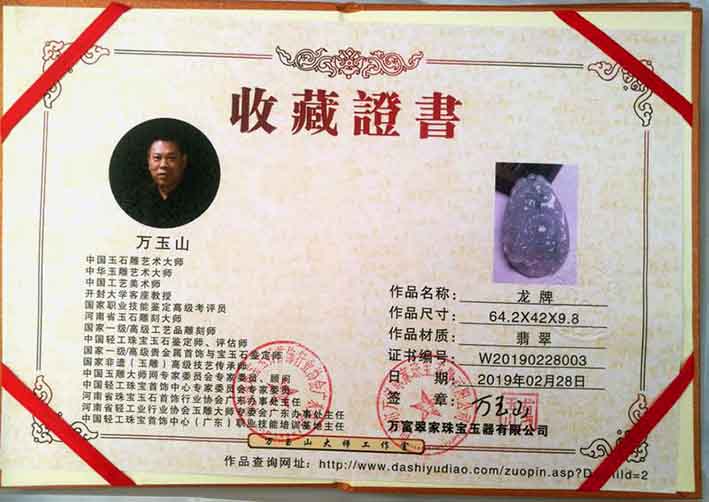 收藏證書
万玉山
中国玉石雕艺术大师
中华玉雕艺术大师
中国工艺美术师
开封大学客座教授
国家职业技能鉴定高级考评员
河南省玉石雕刻大师
国家一级/高级工艺品雕刻师
中国轻工珠宝玉石鉴定师、评估师
国家一级/高级贵金属首饰与宝玉石鉴定师
国家非遗（玉雕）高级技艺传承师
中国玉雕大师网专家委员会专家委员、顾问
中国轻工珠宝首饰中心专家委员会专家委员
河南省珠宝玉石首饰行业协会广东办事处主任
河南省轻工业行业协会玉雕大师专委会广东办事处主任
中国轻工珠宝首饰中心（广东）职业技能培训基地主任
作品名称: 龙牌
作品尺寸: 64.2X42X9.8
作品材质: 翡翠
证书编号: W20190228003
日期: 2019年02月28日
签章: 万玉山
万富翠家珠宝玉器有限公司
万玉山大师工作室
作品查询网址: http://www.dashiyudiao.com/zuopin.asp?D
ild=2